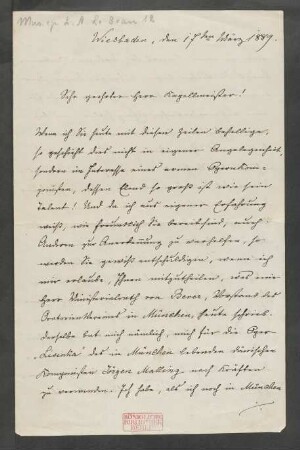 Wiesbaden, den 17ten März 1889.
Sehr geehrter Herr Kapellmeister!
Wenn ich Sie heute mit diesen Zeilen behellige,
so geschieht dies nicht in eigener Angelegenheit,
sondern im Interesse eines armen Opernkom-
ponisten, dessen Elend so groß ist wie sein
Talent! Und da ich aus eigener Erfahrung
weiß, wie freundlich Sie bereit sind, auch
Andren zu Anerkennung zu verhelfen, so
werden Sie gewiß entschuldigen, wenn ich
mir erlaube, Ihnen mitzutheilen, was mir
Herr Ministerialrath von Vorstand des
Oratorienvereins in München, heute schrieb.
Derselbe bat mich nämlich, mich für die Oper
des in München lebenden dänischen
Komponisten Jörgen Malling nach Kräften
zu verwenden. Ich habe, als ich noch in München